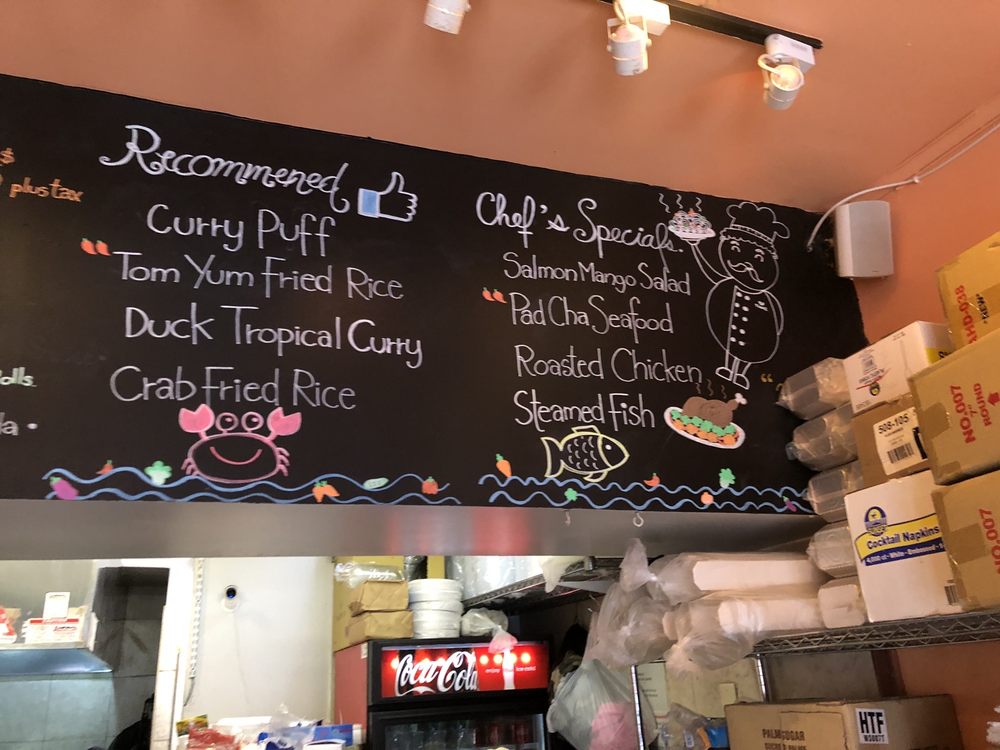 $
plus tax
Recommened
Curry Puff
Tom Yum Fried Rice
Duck Tropical Curry
Crab Fried Rice
Chef's Specials.
Salmon Mango Salad
Pad Cha Seafood
Roasted Chicken
Steamed Fish
Coca-Cola
enjoy
ice-cold
508-105
Cocktail Napkins
NO.007
7"
ROUND
NO.007
PALM SUGAR
HTF